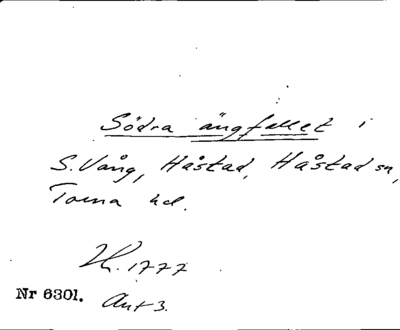 Södra ängfallet i
S. Vång, Håstad, Håstad sn,
Torna hd.
H. 1777
Nr 6301. Akt 3.